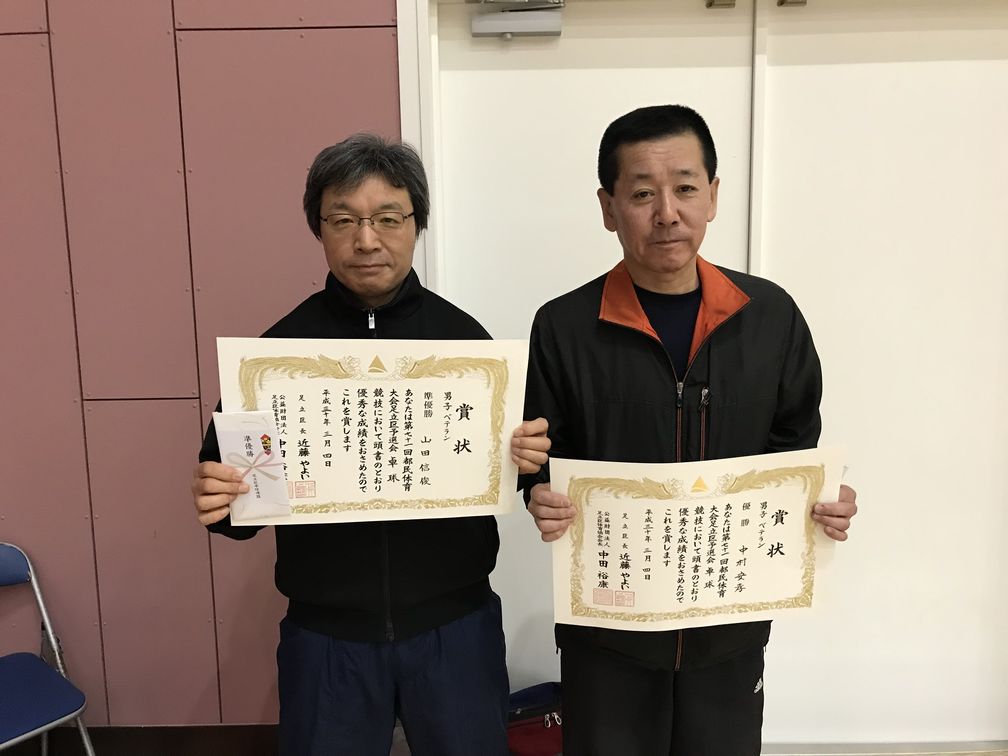 賞状
男子 ベテラン
準優勝 山田信俊
あなたは第七十一回都民体育
大会足立区予選会 卓球
競技において頭書のとおり
優秀な成績をおさめたので
これを賞します
平成三十年 三月 四日
足立区長 近藤やよい
公益財団法人
準優勝
賞状
男子 ベテラン
優勝
あなたは第七十一回都民体育
大会足立区予選会 卓球
競技において頭書のとおり
優秀な成績をおさめたので
これを賞します
平成三十年 三月 四日
足立区長 近藤やよい
公益財団法人
足立区体育協会会長 中田裕康